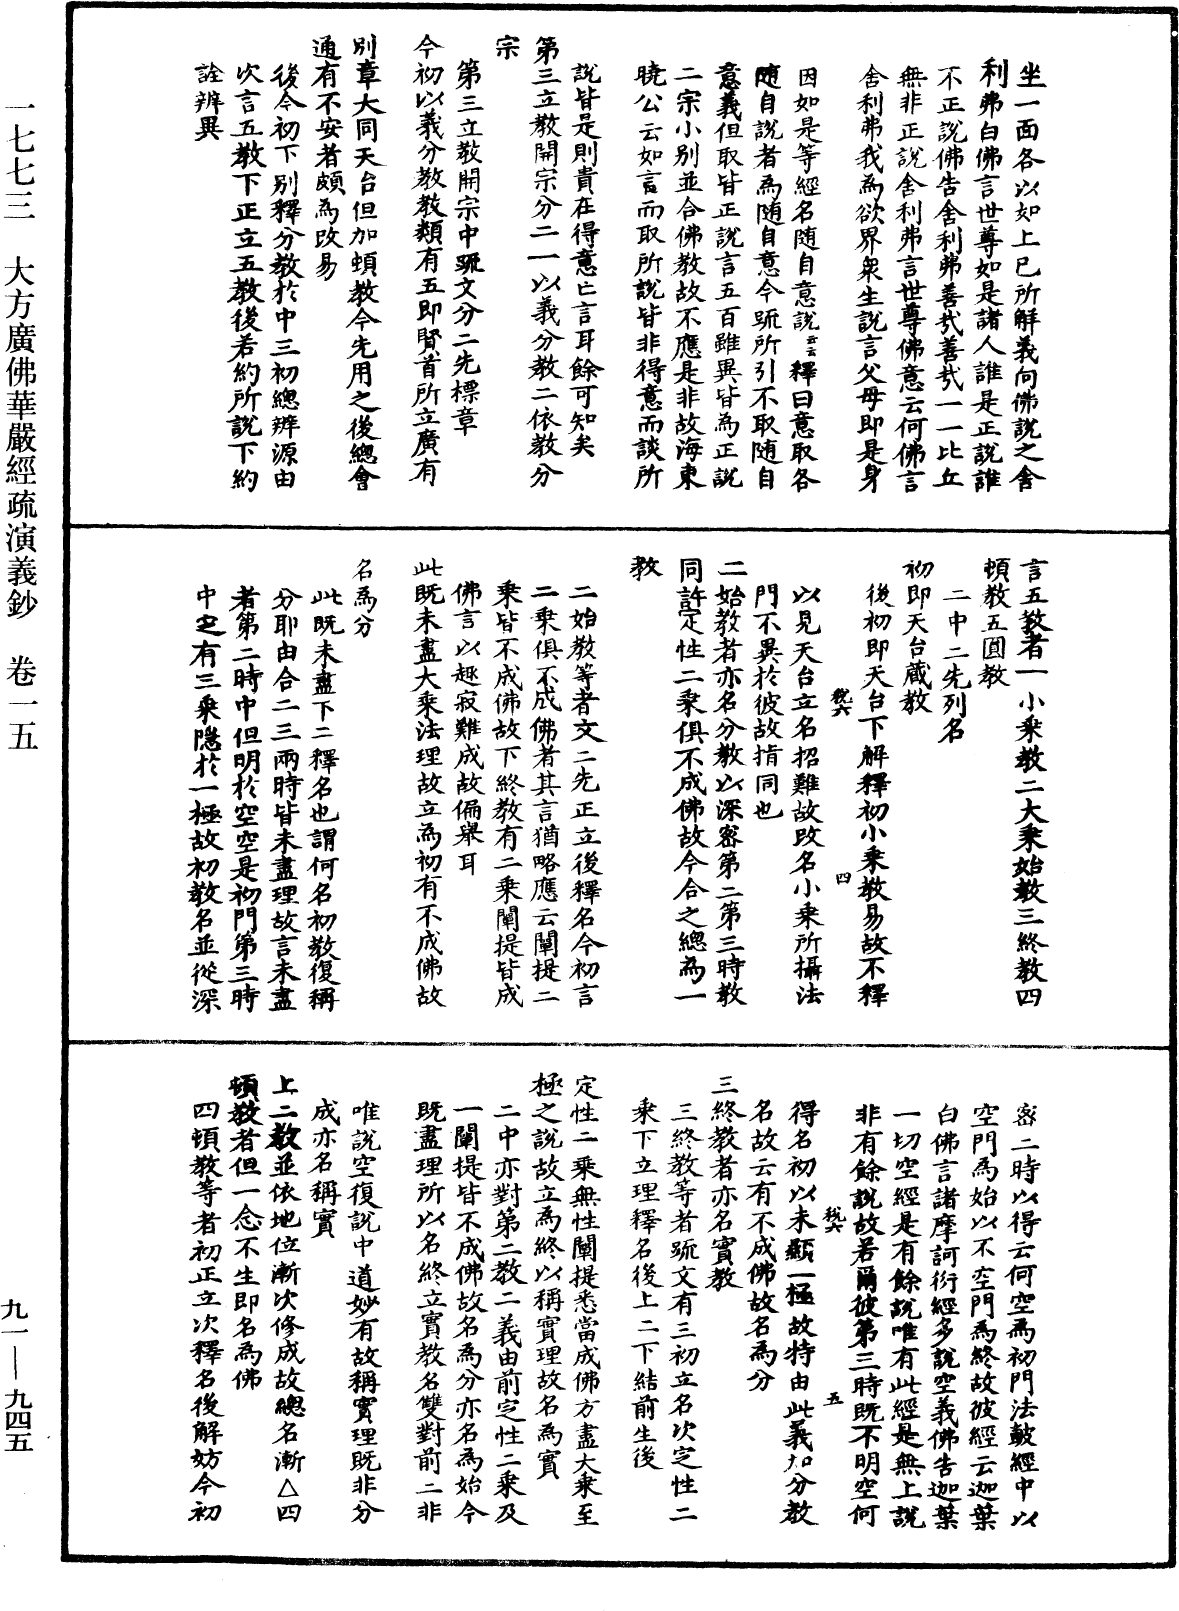 坐一面各以如上已所解義向佛說之舍
利弗白佛言世尊如是諸人誰是正說誰
不正說佛告舍利弗善哉善哉一一比丘
無非正說舍利弗言世尊佛意云何佛言
舍利弗我為欲界衆生說言父母即是身
因如是等經名随自意說云云釋曰意取各
随自說者為随自意今䟽所引不取随自
意義但取皆正說言五百雖異皆為正說
二宗小別並合佛教故不應是非故海東
曉公云如言而取所說皆非得意而談所
說皆是則貴在得意亡言耳餘可知矣
第三立教開宗分二一以義分教二依教分
宗
第三立教開宗中䟽文分二先標章
今初以義分教教類有五即賢首所立廣有
別章大同天台但加頓教今先用之後總會
通有不安者頗為改易
後今初下別釋分教於中三初總辨源由
次言五教下正立五教後若約所說下約
詮辨異
言五教者一小乘教二大乘始教三終教四
頓教五圓教
二中二先列名
初即天台藏教
後初即天台下解釋初小乘教易故不釋
以見天台立名招難故改名小乘所攝法
門不異於彼故指同也
二始教者亦名分教以深密第二第三時教
同許定性二乘俱不成佛故今合之總為一
教
二始教等者文二先正立後釋名今初言
二乘俱不成佛者其言猶略應云闡提二
乘皆不成佛故下終教有二乘闡提皆成
佛言以趣寂難成故偏舉耳
此既未盡大乘法理故立為初有不成佛故
名為分
此既未盡下二釋名也謂何名初教復稱
分耶由合二三兩時皆未盡理故言未盡
者第二時中但明於空空是初門第三時
中定有三乘隱於一極故初教名並從深
密二時以得云何空為初門法鼓經中以
空門為始以不空門為終故彼經云迦葉
白佛言諸摩訶衍經多說空義佛告迦葉
一切空經是有餘說唯有此經是無上說
非有餘說故若爾彼第三時既不明空何
得名初以未顯一極故特由此義加分教
名故云有不成佛故名為分
三終教者亦名實教
三終教等者䟽文有三初立名次定性二
乘下立理釋名後上二下結前生後
定性二乘無性闡提悉當成佛方盡大乘至
極之說故立為終以稱實理故名為實
二中亦對第二教二義由前定性二乘及
一闡提皆不成佛故名為分亦名為始今
既盡理所以名終立實教名雙對前二非
唯說空復說中道妙有故稱實理既非分
成亦名稱實
上二教並依地位漸次修成故總名漸△四
頓教者但一念不生即名為佛
四頓教等者初正立次釋名後解妨今初
一七七三　大方廣佛華嚴經疏演義鈔　卷一五
九一——九四五